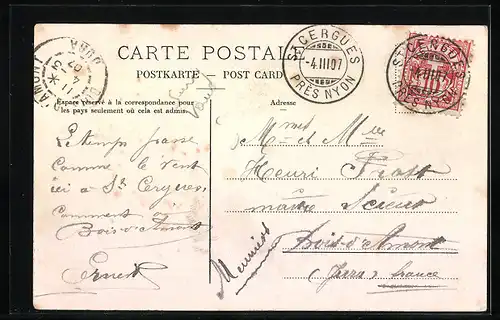 CARTE POSTALE
POSTKARTE — POST CARD
Espace réservé à la correspondance pour
les pays seulement où cela est admis.
Adresse
ST CERGUES
-4.III.07
PRÈS NYON
ST CERGUES
-4.III.07
PRÈS NYON
JURA
Le temps passe
comme le vent
ici à St Cergues
Comment
Bois-d'Amont
Ernest
Mr et Mlle
Henri
Bois-d'Amont
(Jura) France